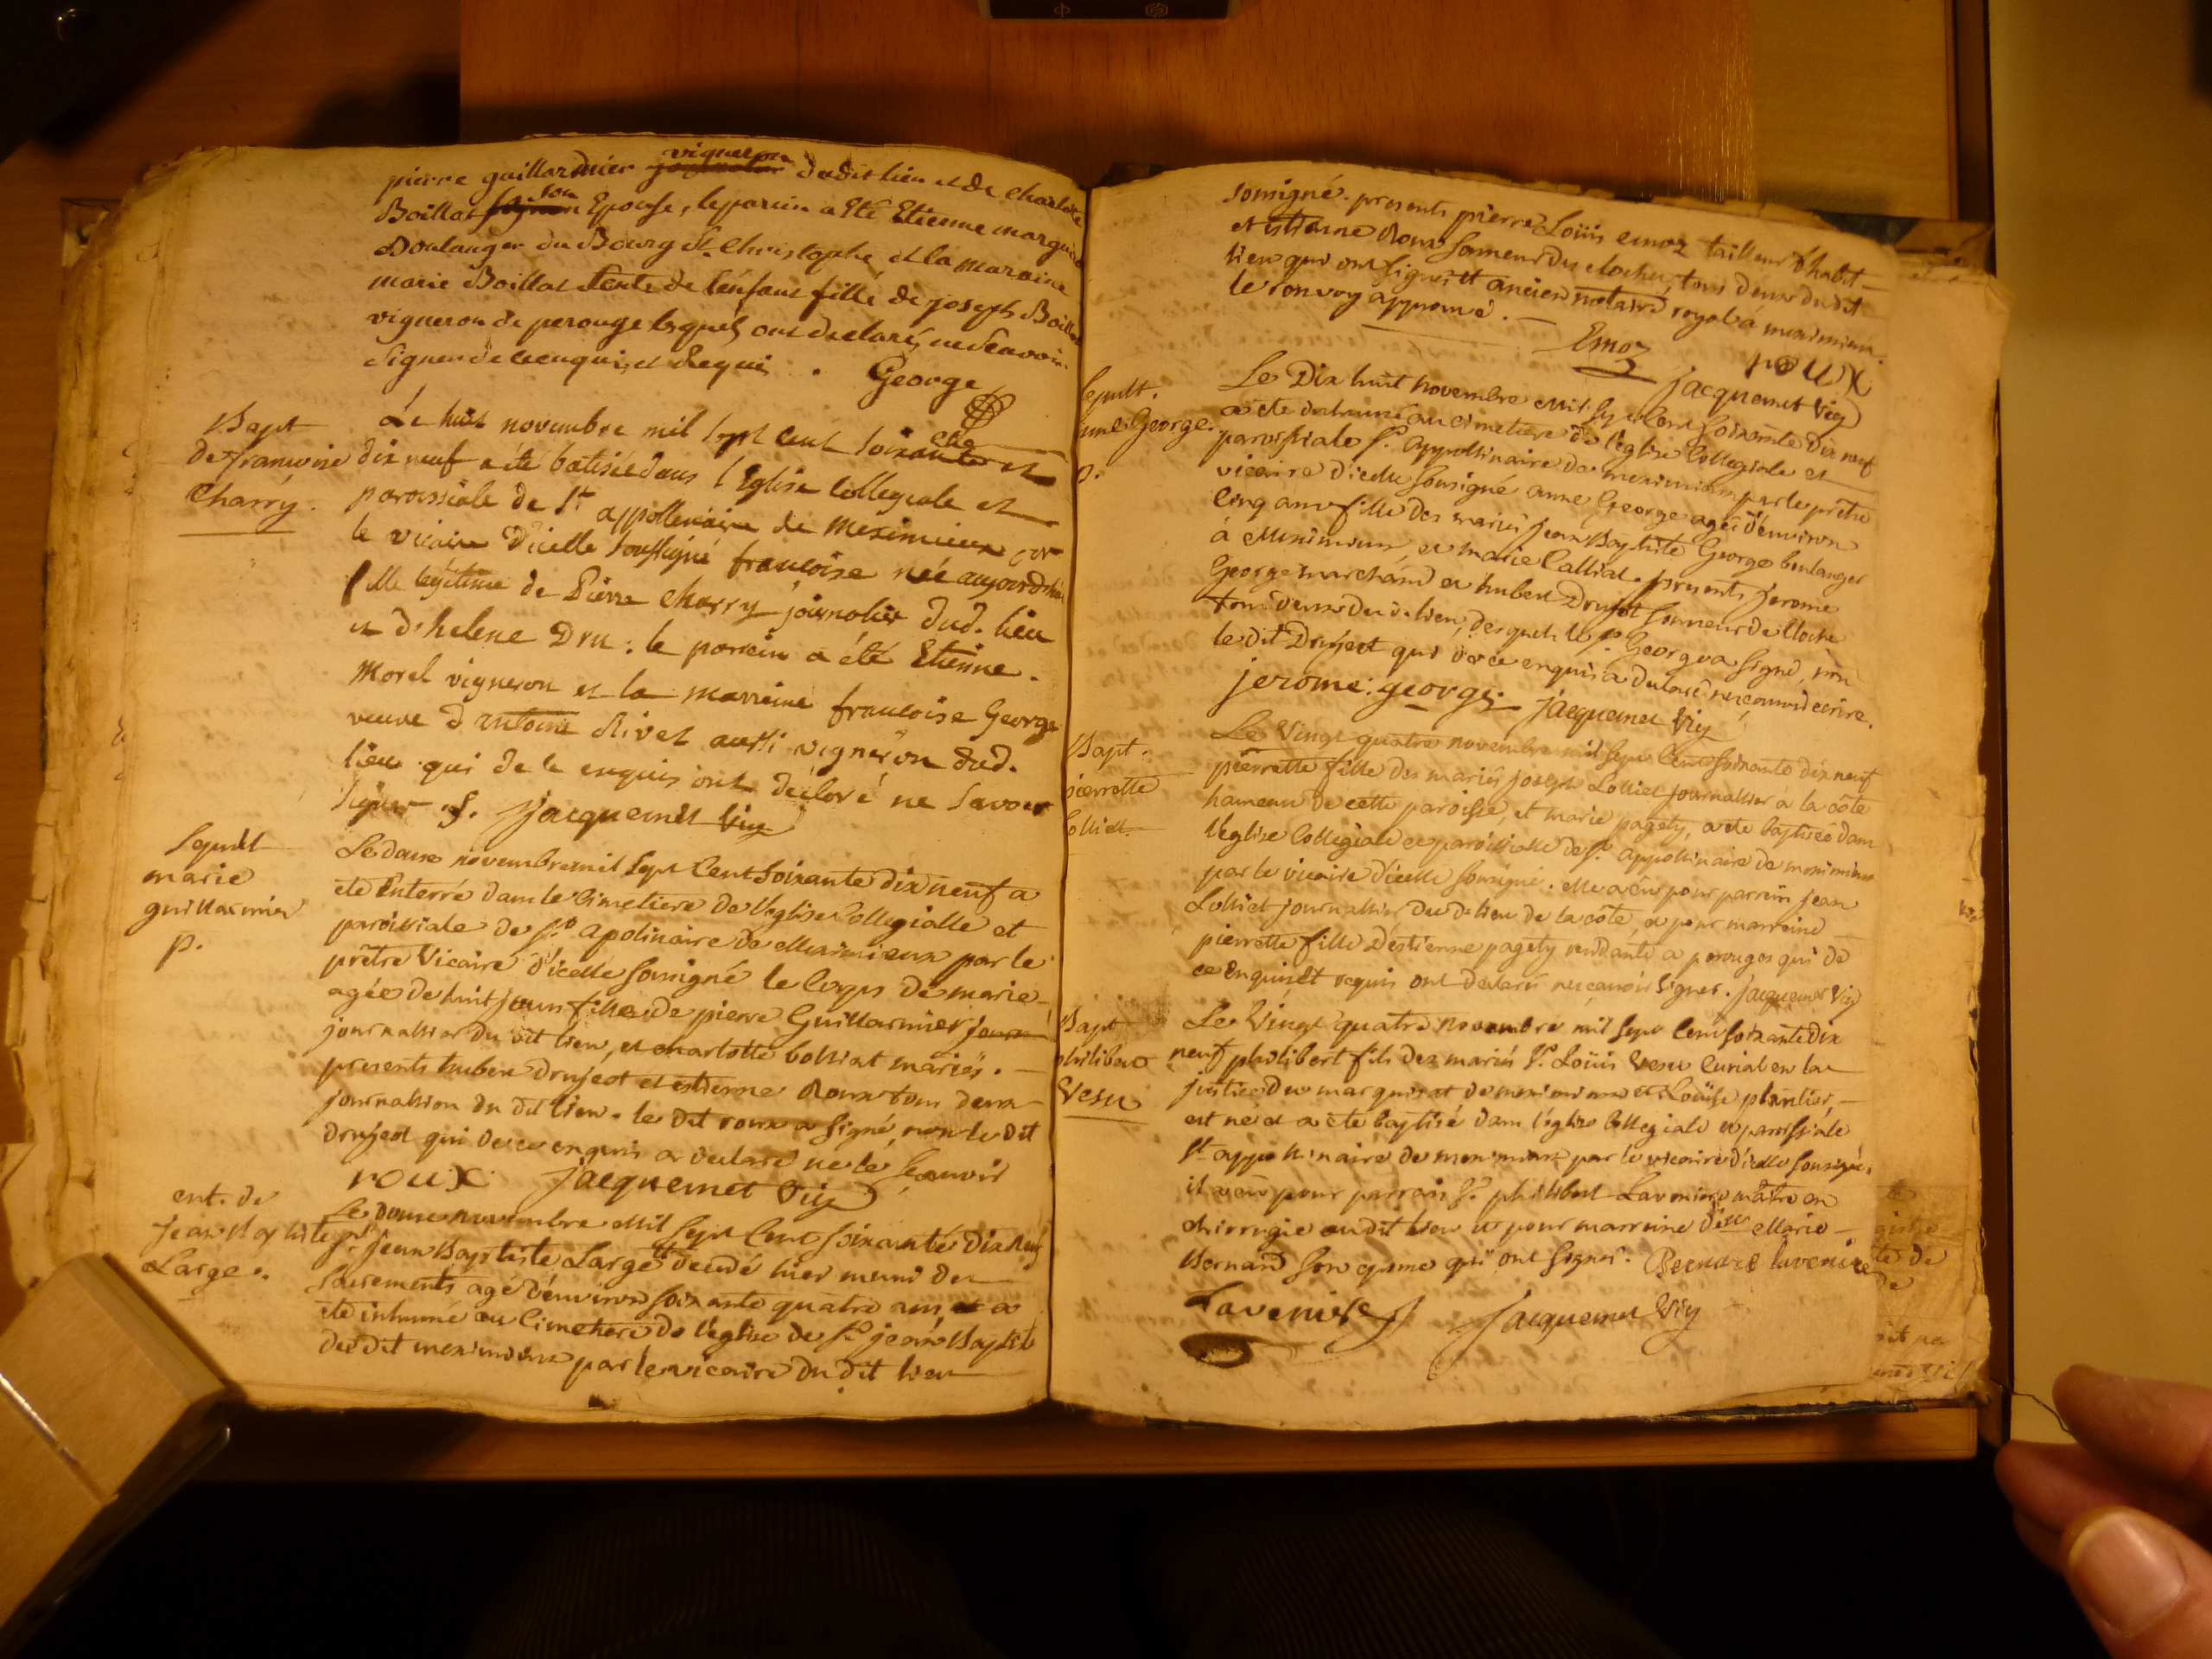 pierre guillarmier vigneron dudit lieu et de charlotte
Boillat son Epouse, le parein a Eté Etienne marguin
Boulanger du Bourg St. Christophe, et la maraine
marie Boillat tente de l'enfant fille de joseph Boillat
vigneron de perouge lesquels ont declaré ne scavoir
signer de ce enquis et Requis. George
Bapt
de francoise
Charry.
Le huit novembre mil sept cent soixante et
dix neuf a été batisée dans l'Eglise Collegiale et
paroissiale de St appollinaire de Meximieux par
le vicaire d'icelle soussigné francoise née aujourd'hui
fille légitime de Pierre Charry journalier dud. lieu
et d'helene Dru : le parrain a été Etienne
Morel vigneron et la marreine francoise George
veuve d'antoine Rivet aussi vigneron dud.
lieu qui de ce enquis ont déclaré ne savoir
signer. Jacquemet Vic
Sepult
marie
guillarmier
p.
Le douze novembre mil sept cent soixante dix neuf a
ete Enterré dans le cimetiere de l'eglise Collegialle et
paroissiale de St apolinaire de Meximieux par le
prêtre Vicaire d'icelle sousigné le corps de marie
agée de huit jours fille de pierre Guillarmier journ
journallier du dit lieu, et charlotte bolliat mariés.
presents huber drujeot et estienne Roux tous deux
journalliers du dit lieu. le dit roux a signé, non le dit
drujeot qui de ce enquis a declaré ne le sçauvoir
roux Jacquemet Vic
ent. de
jean Baptiste
Large.
Le douze novembre Mil sept cent soixante dix neuf
sr. jean Baptiste Large decedé hier muni des
sacrements agé d'environ soixante quatre ans, a
ete inhumé au cimetiere de l'eglise de St jean Baptiste
du dit meximieux par le vicaire du dit lieu
sousigné. presents pierre Loüis emoz tailleur d'habit
et estienne Roux sonneur des cloches, tous deux dudit
lieu qui ont signés et ancien notaire royal á meximieux.
le renvoy approuvé.
Emoz roux
Jacquemet Vic
Sepult.
anne George.
p.
Le Dix huit novembre Mil sept Cent soixante dix neuf
a ete inhumé au cimetiere de l'eglise Collegiale et
paroissiale St. appollinaire de meximieux par le prêtre
vicaire d'icelle sousigné anne George ageé d'environ
cinq ans fille des mariés jean Baptiste George boulanger
à Meximieux, et marie Calliat. presents jerome
George marchand et huber Drujot sonneur de cloche
tous deux du d. lieu, desquels le sr. George a signé, non
le dit Drujeot qui de ce enquis a declaré ne sçavoir ecrire.
jerome george Jacquemet Vic
Bapt.
pierrette
Lolliet.
Le Vingt quatre novembre mil sept cent soixante dix neuf
pierrette fille des mariés joseph Lolliet journallier a la côte
hameau de cette paroisse, et marie pagety, a ete baptiseé dans
l'eglise Collegiale et paroissialle de St. appollinaire de meximieux
par le vicaire d'icelle sousigné. elle a eu pour parrain jean
Lolliet journallier du d. lieu de la côte, et pour marraine
pierrette fille d'estienne pagety residante a perouges qui de
ce enquis et requis ont declaré ne sçavoir signer. Jacquemet Vic
Bapt
philibert
Vesu
Le Vingt quatre novembre mil sept Cent soixante dix
neuf philibert fils des mariés sr. Loüis Vesu Curial en la
justice du marquisat de meximieux et Loüise plantier,
est né et a ete baptisé dans l'eglise Collegiale et paroissiale
St appollinaire de meximieux par le vicaire d'icelle sousigné,
il a eu pour parrain sr. philibert Lavenire maître en
chirurgie audit lieu et pour marraine delle Marie
Bernard son epouse qui ont signés. Bernard lavenire
Lavenire Jacquemet Vic